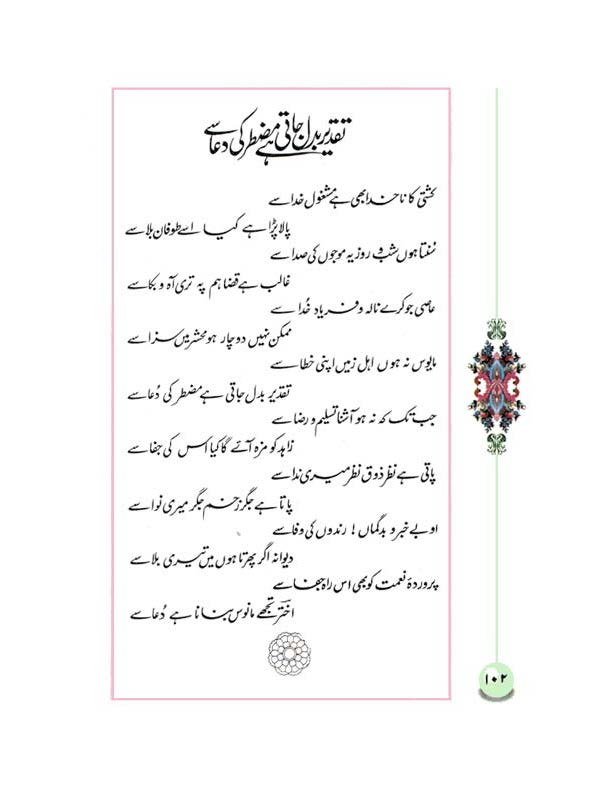 تقدیر بدل جاتی ہے مضطر کی دعا سے
کشتی کا ناخدا بھی ہے مشغول خدا سے
پالا پڑا ہے کیا اسے طوفان بلا سے
سُنتا ہوں شب و روز یہ موجوں کی صدا سے
غالب ہے قضا ہم پہ تری آہ و بکا سے
عاصی جو کرے نالہ و فریاد خُدا سے
ممکن نہیں دوچار ہو محشر میں سزا سے
مایوس نہ ہوں اہل زمیں اپنی خطا سے
تقدیر بدل جاتی ہے مضطر کی دُعا سے
جب تک کہ نہ ہو آشنا تسلیم و رضا سے
زاہد کو مزہ آئے گا کیا اس کی جفا سے
پاتی ہے نظر ذوق نظر میری ندا سے
پاتا ہے جگر زخم جگر میری نوا سے
او بے خبر و بدگماں! رندوں کی وفا سے
دیوانہ اگر پھرتا ہوں میں تیری بلا سے
پروردۂ نعمت کو بھی اس راہ جفا سے
اختؔر تجھے مانوس بنانا ہے دُعا سے
۱۰۲